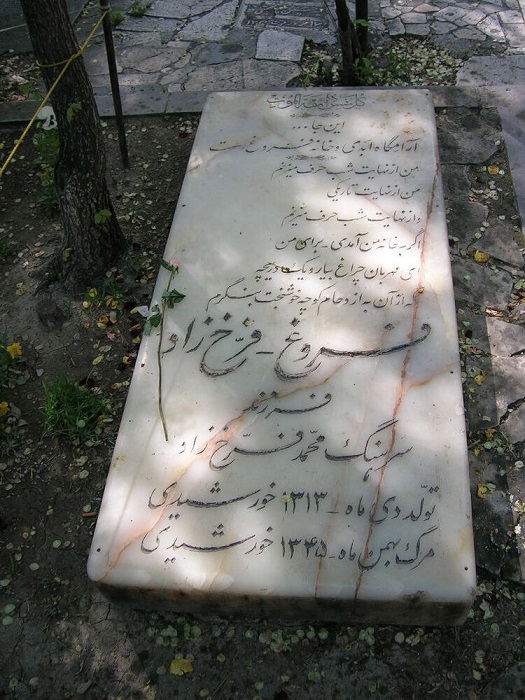 کل نفس ذائقة الموت
این جا...
آرامگاه ابدی و خانه فروغ است
من از نهایت شب حرف میزنم
من از نهایت تاریکی
و از نهایت شب حرف میزنم
اگر به خانه من آمدی - برای من
ای مهربان چراغ بیار و یک دریچه
که از آن - به ازدحام کوچه خوشبخت بنگرم
فروغ - فرخ زاد
فرزند
سرهنگ محمد فرخ زاد
تولد دی ماه - ۱۳۱۳ خورشیدی
مرگ بهمن ماه - ۱۳۴۵ خورشیدی